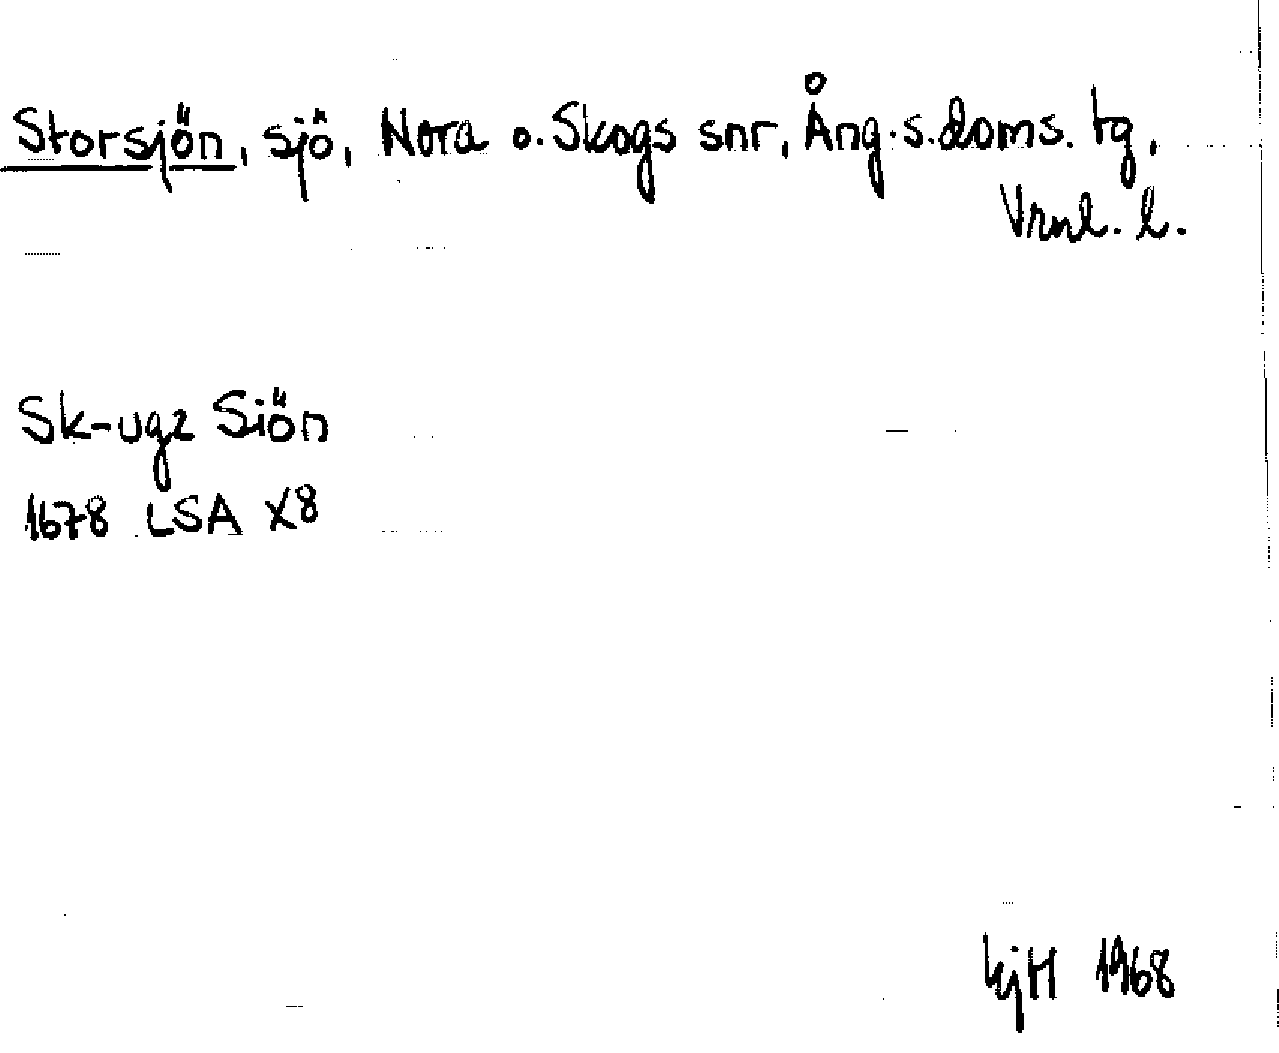 Storsjön, sjö, Nora o. Skogs snr, Ång. s. doms. tg,
Vrnl. l.
Sk-ugz Siön
1678 LSA X8
1968